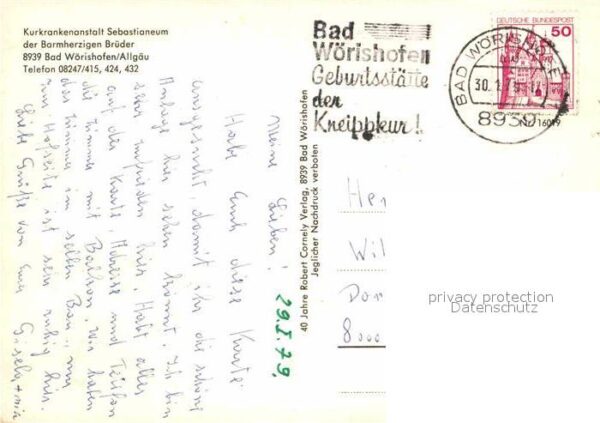 Kurkrankenanstalt Sebastianeum
der Barmherzigen Brüder
8939 Bad Wörishofen/Allgäu
Telefon 08247/415, 424, 432
Bad
Wörishofen
Geburtsstätte
der
Kneippkur!
DEUTSCHE BUNDESPOST
50
BAD WÖRISHOFEN
30.1.79
8939
16019
29.I.79.
Meine Lieben!
Habe Euch diese Karte
ausgesucht, damit ihr die schöne
Anlage hier sehen könnt. Ich bin
sehr zufrieden hier. Habt alles
auf der Karte, Adresse und Telefon
die Zimmer mit Balkon. Wir haben
das Zimmer im selben Bau, nur
zur Hofseite ist sehr ruhig hier.
Liebe Grüße von Eurer Gisela
40 Jahre Robert Cornely Verlag, 8939 Bad Wörishofen
Jeglicher Nachdruck verboten
Her
Wil
Dor
8000
privacy protection
Datenschutz